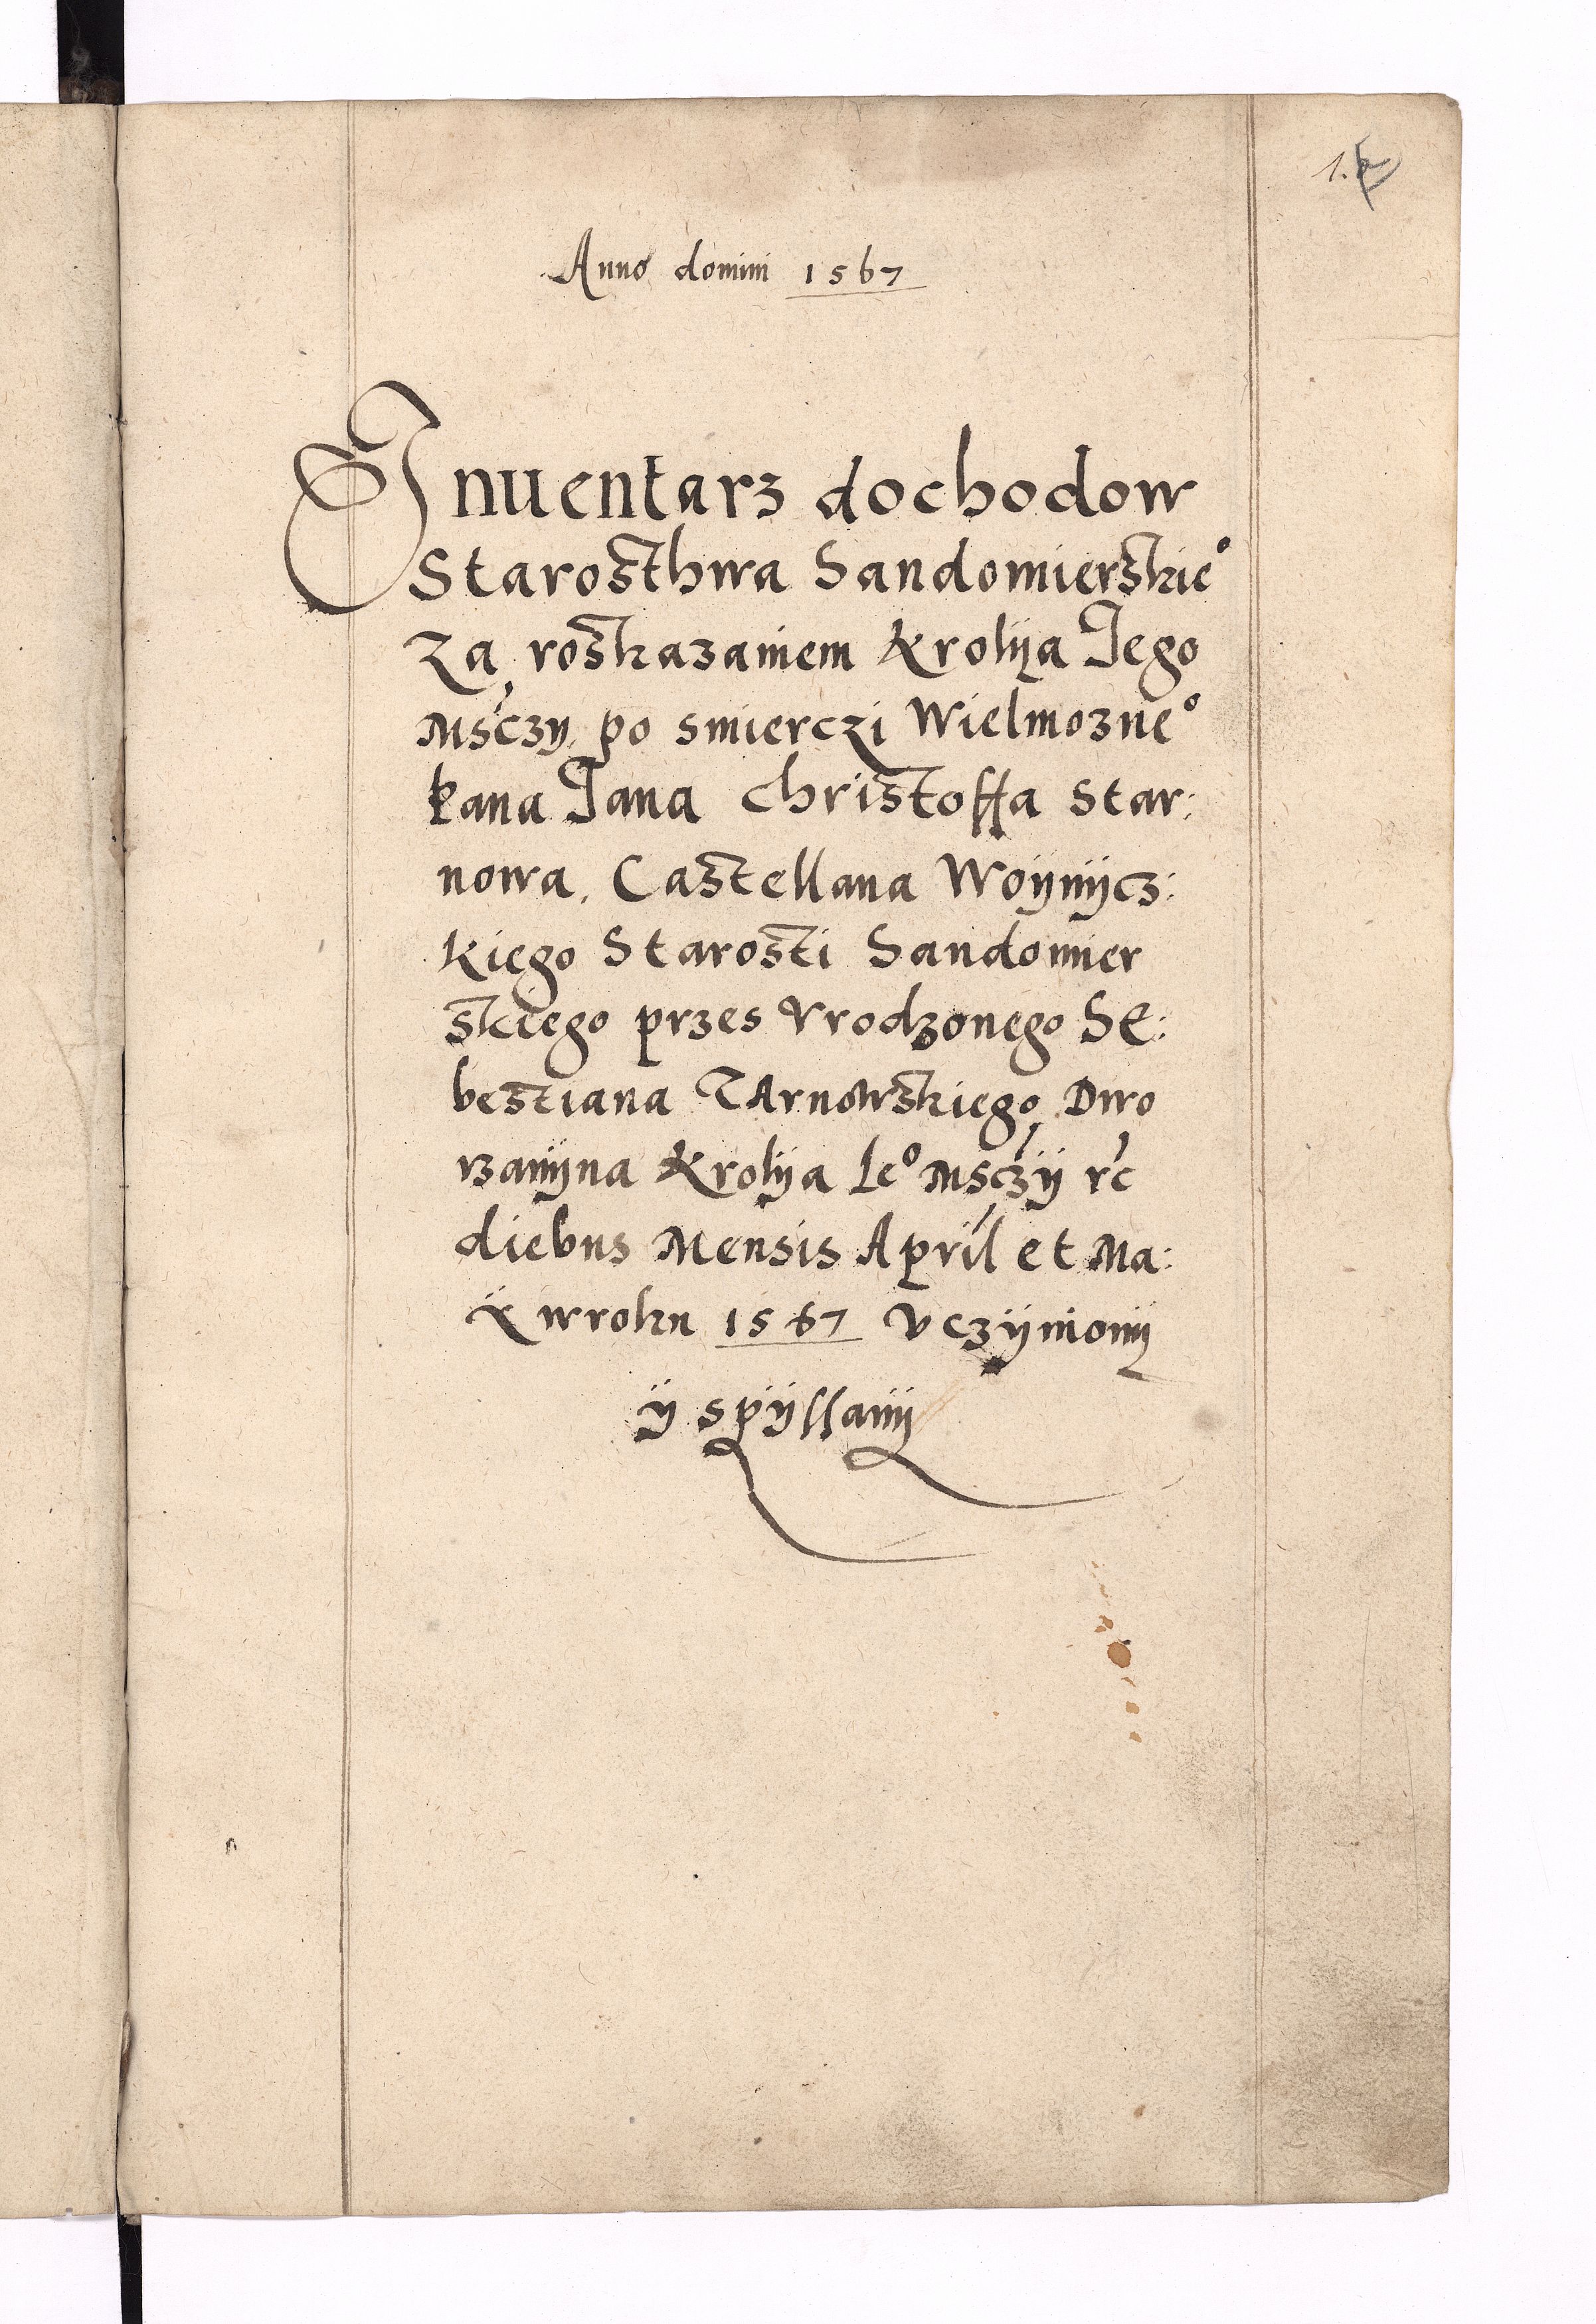 1.
Anno domini 1567
Inuentarz dochodow
Starosthwa Sandomierskie°
Za roskazaniem Krolya Jego
Msczy po smierczi Wielmozne°
Pana Jana Christoffa Star:
nowa, Castellana Woynycz:
kiego Starosti Sandomier
skiego przes Vrodzonego Se:
bestiana Tarnowskiego Dwo
rzanyna Krolya Je° Msczÿ rc
diebus Mensis April et Ma:
ÿ w roku 1567 Vczÿniony
ÿ spÿssany